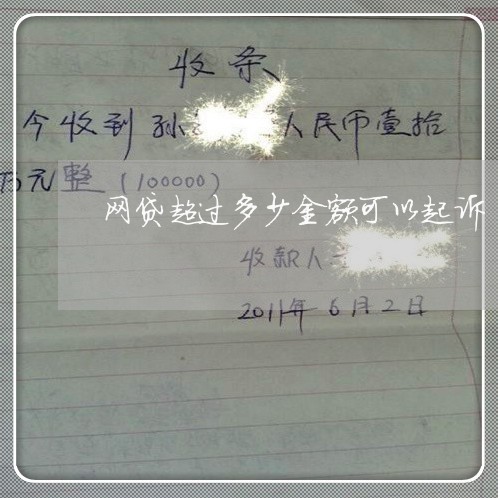 收条
今收到孙 人民币壹拾
万元整(100000)
网贷超过多少金额可以起诉
收款人
2011年6月2日